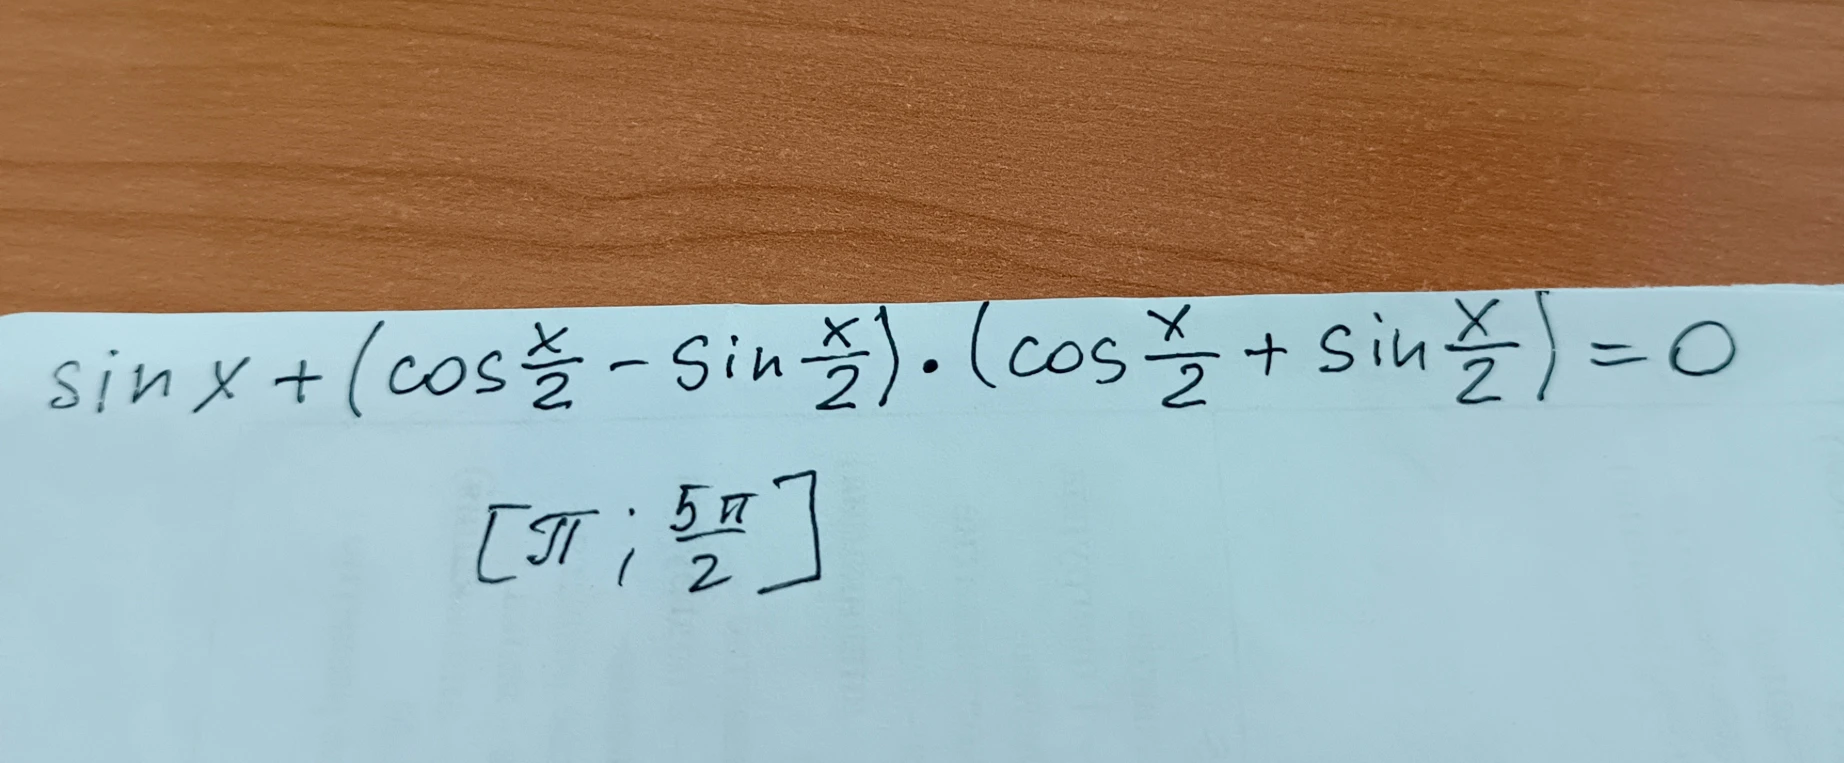 sin x + (cos x/2 - sin x/2) · (cos x/2 + sin x/2) = 0
[π ; 5π/2]